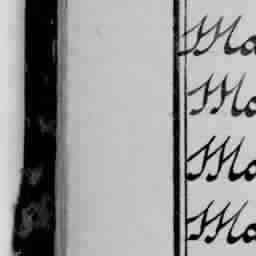 Ma
Ma
Ma
Ma